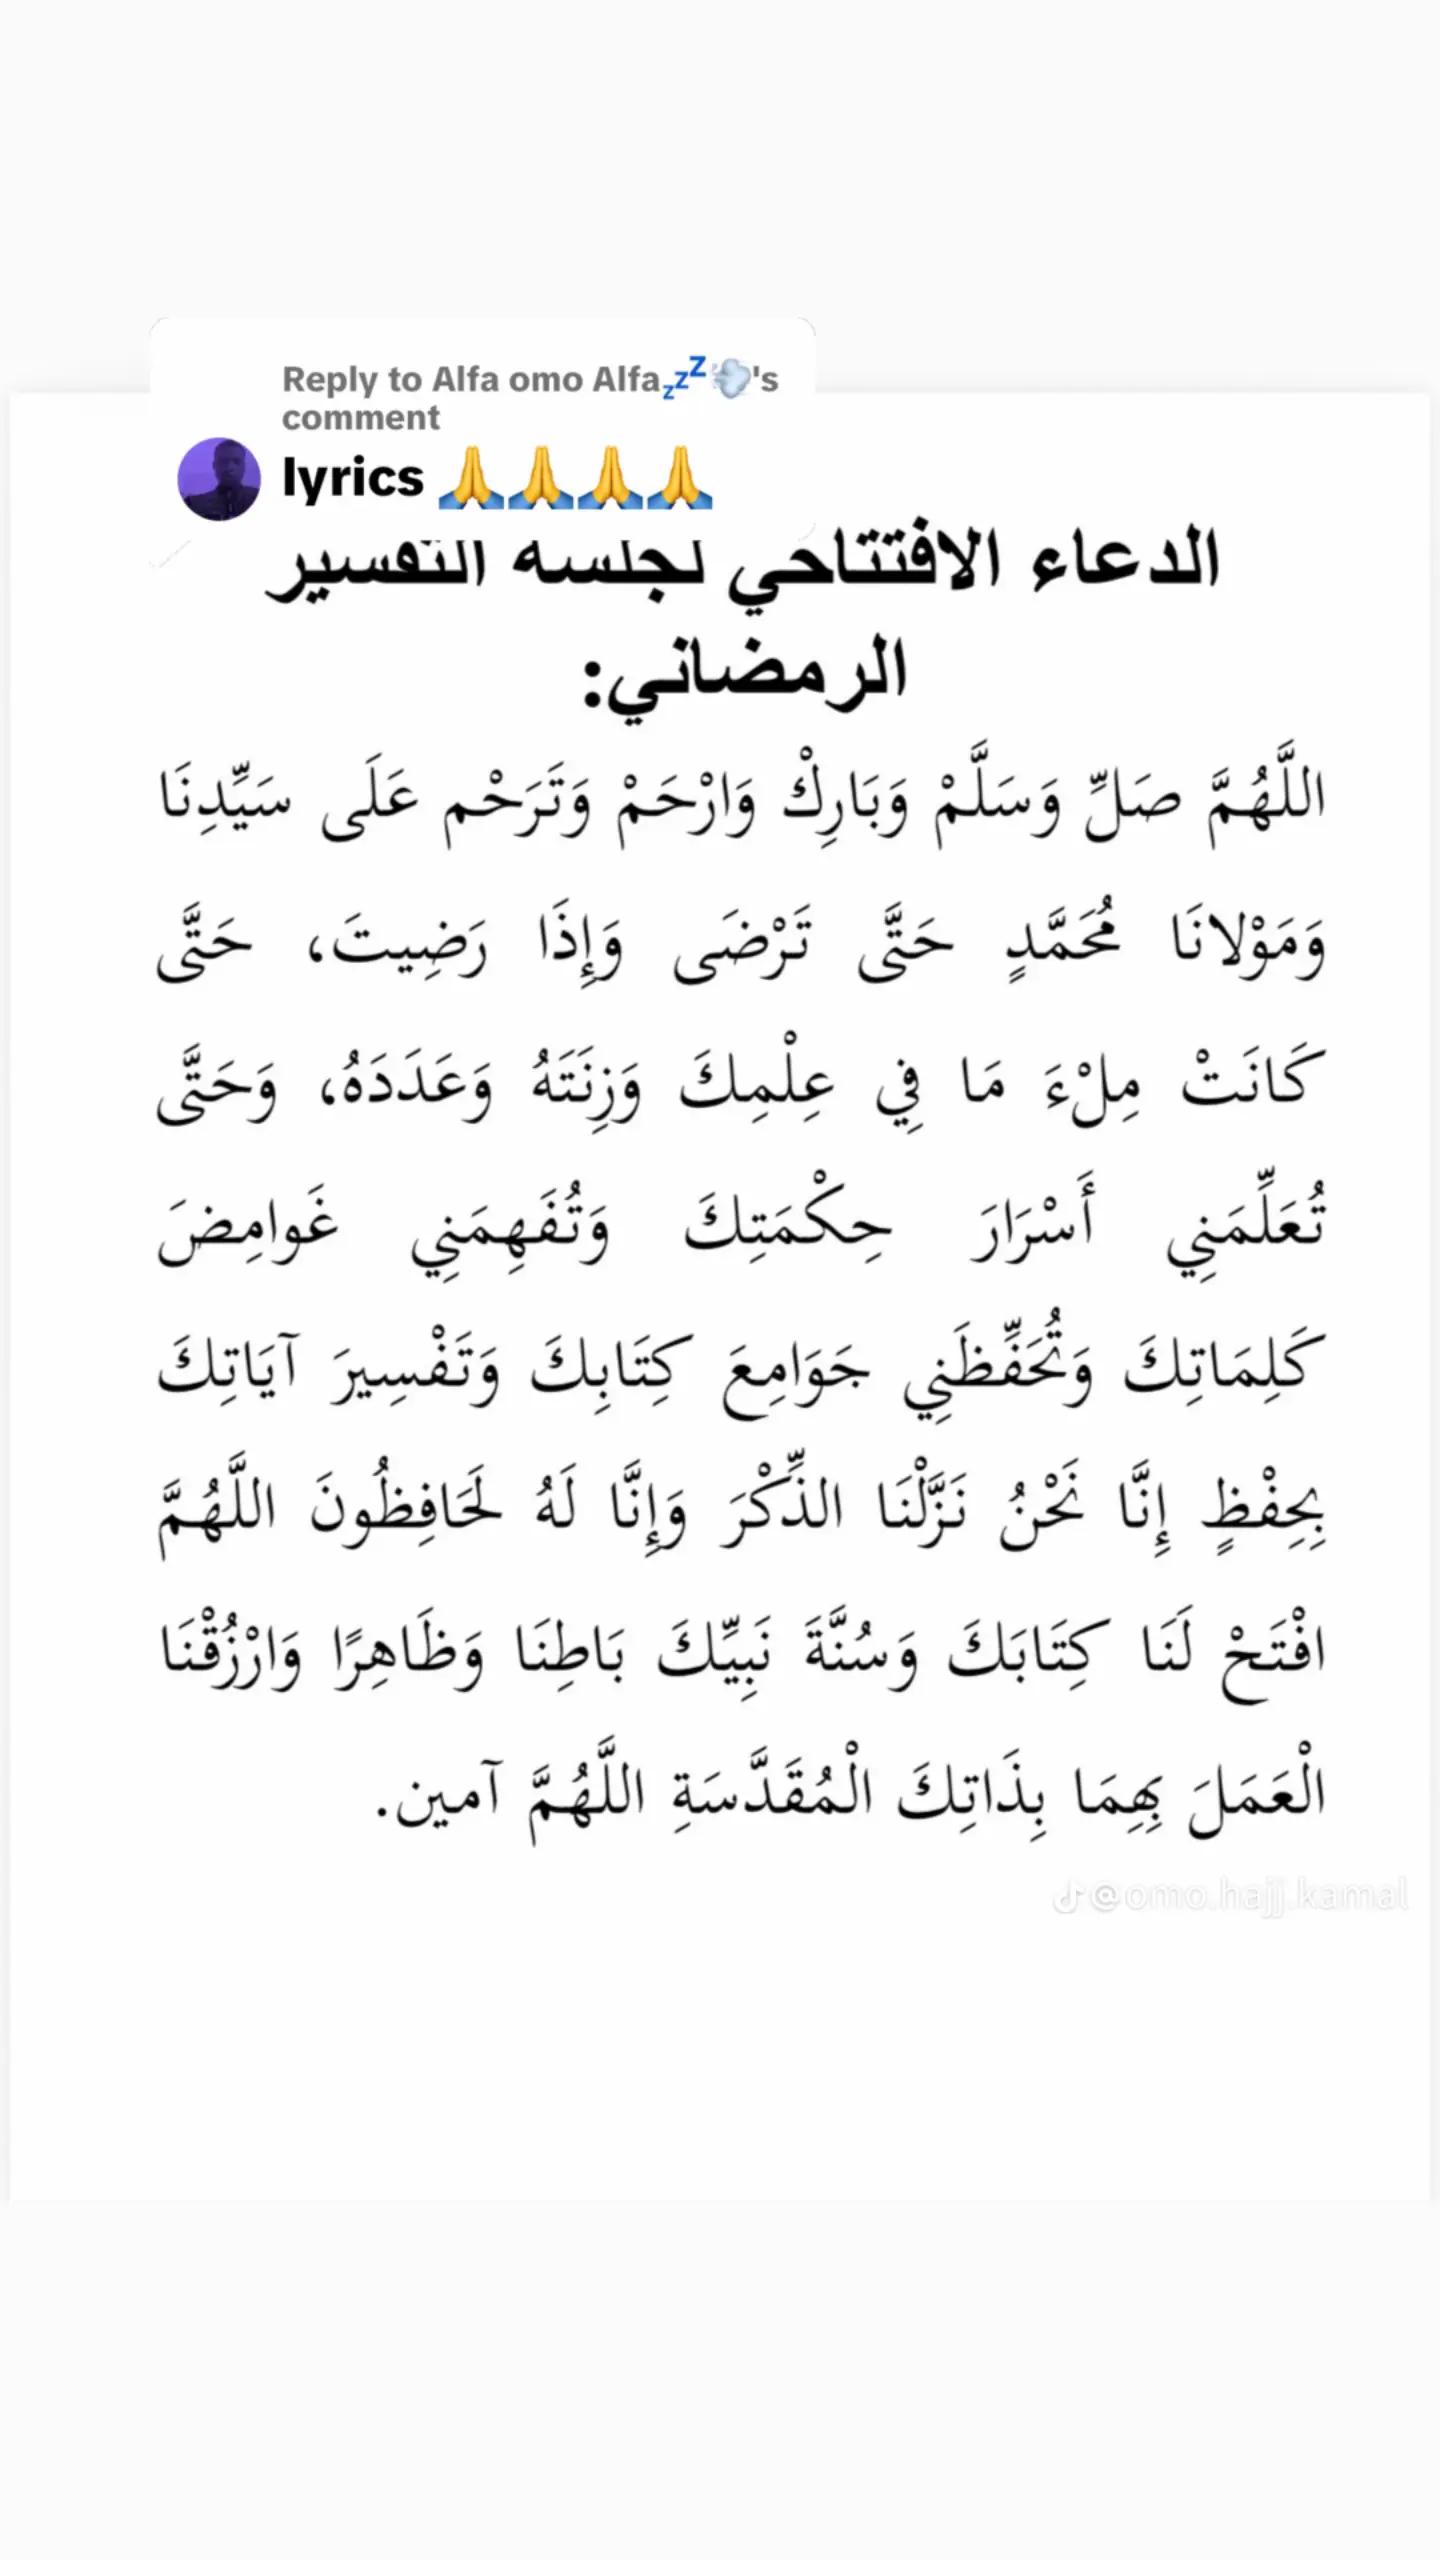 Reply to Alfa omo Alfa💤💨's
comment
lyrics 🙏🙏🙏🙏
الدعاء الافتتاحي لجلسة التفسير
الرمضاني:
اللَّهُمَّ صَلِّ وَسَلَّمْ وَبَارِكْ وَارْحَمْ وَتَرَحْم عَلَى سَيِّدِنَا
وَمَوْلانَا مُحَمَّدٍ حَتَّى تَرْضَى وَإِذَا رَضِيتَ، حَتَّى
كَانَتْ مِلْءَ مَا فِي عِلْمِكَ وَزِنَتَهُ وَعَدَدَهُ، وَحَتَّى
تُعَلِّمَنِي أَسْرَارَ حِكْمَتِكَ وَتُفَهِمَنِي غَوامِضَ
كَلِمَاتِكَ وَتُحَفِّظَنِي جَوَامِعَ كِتَابِكَ وَتَفْسِيرَ آيَاتِكَ
بِحِفْظٍ إِنَّا نَحْنُ نَزَّلْنَا الذِّكْرَ وَإِنَّا لَهُ لَحَافِظُونَ اللَّهُمَّ
افْتَحْ لَنَا كِتَابَكَ وَسُنَّةَ نَبِيِّكَ بَاطِنَا وَظَاهِرًا وَارْزُقْنَا
الْعَمَلَ بِهِمَا بِذَاتِكَ الْمُقَدَّسَةِ اللَّهُمَّ آمين.
@omo.hajj.kamal